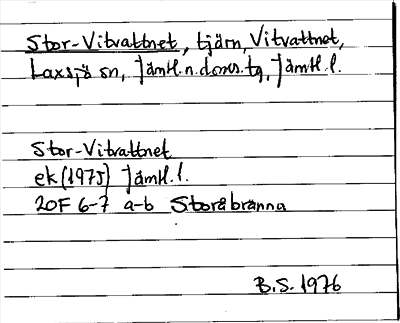 Stor-Vitvattnet, tjärn, Vitvattnet,
Laxsjö sn, Jämtl.n.doms.tg, Jämtl.l.
Stor-Vitvattnet
ek(1975) Jämtl.l.
20F 6-7 a-b Storåbränna
B.S. 1976